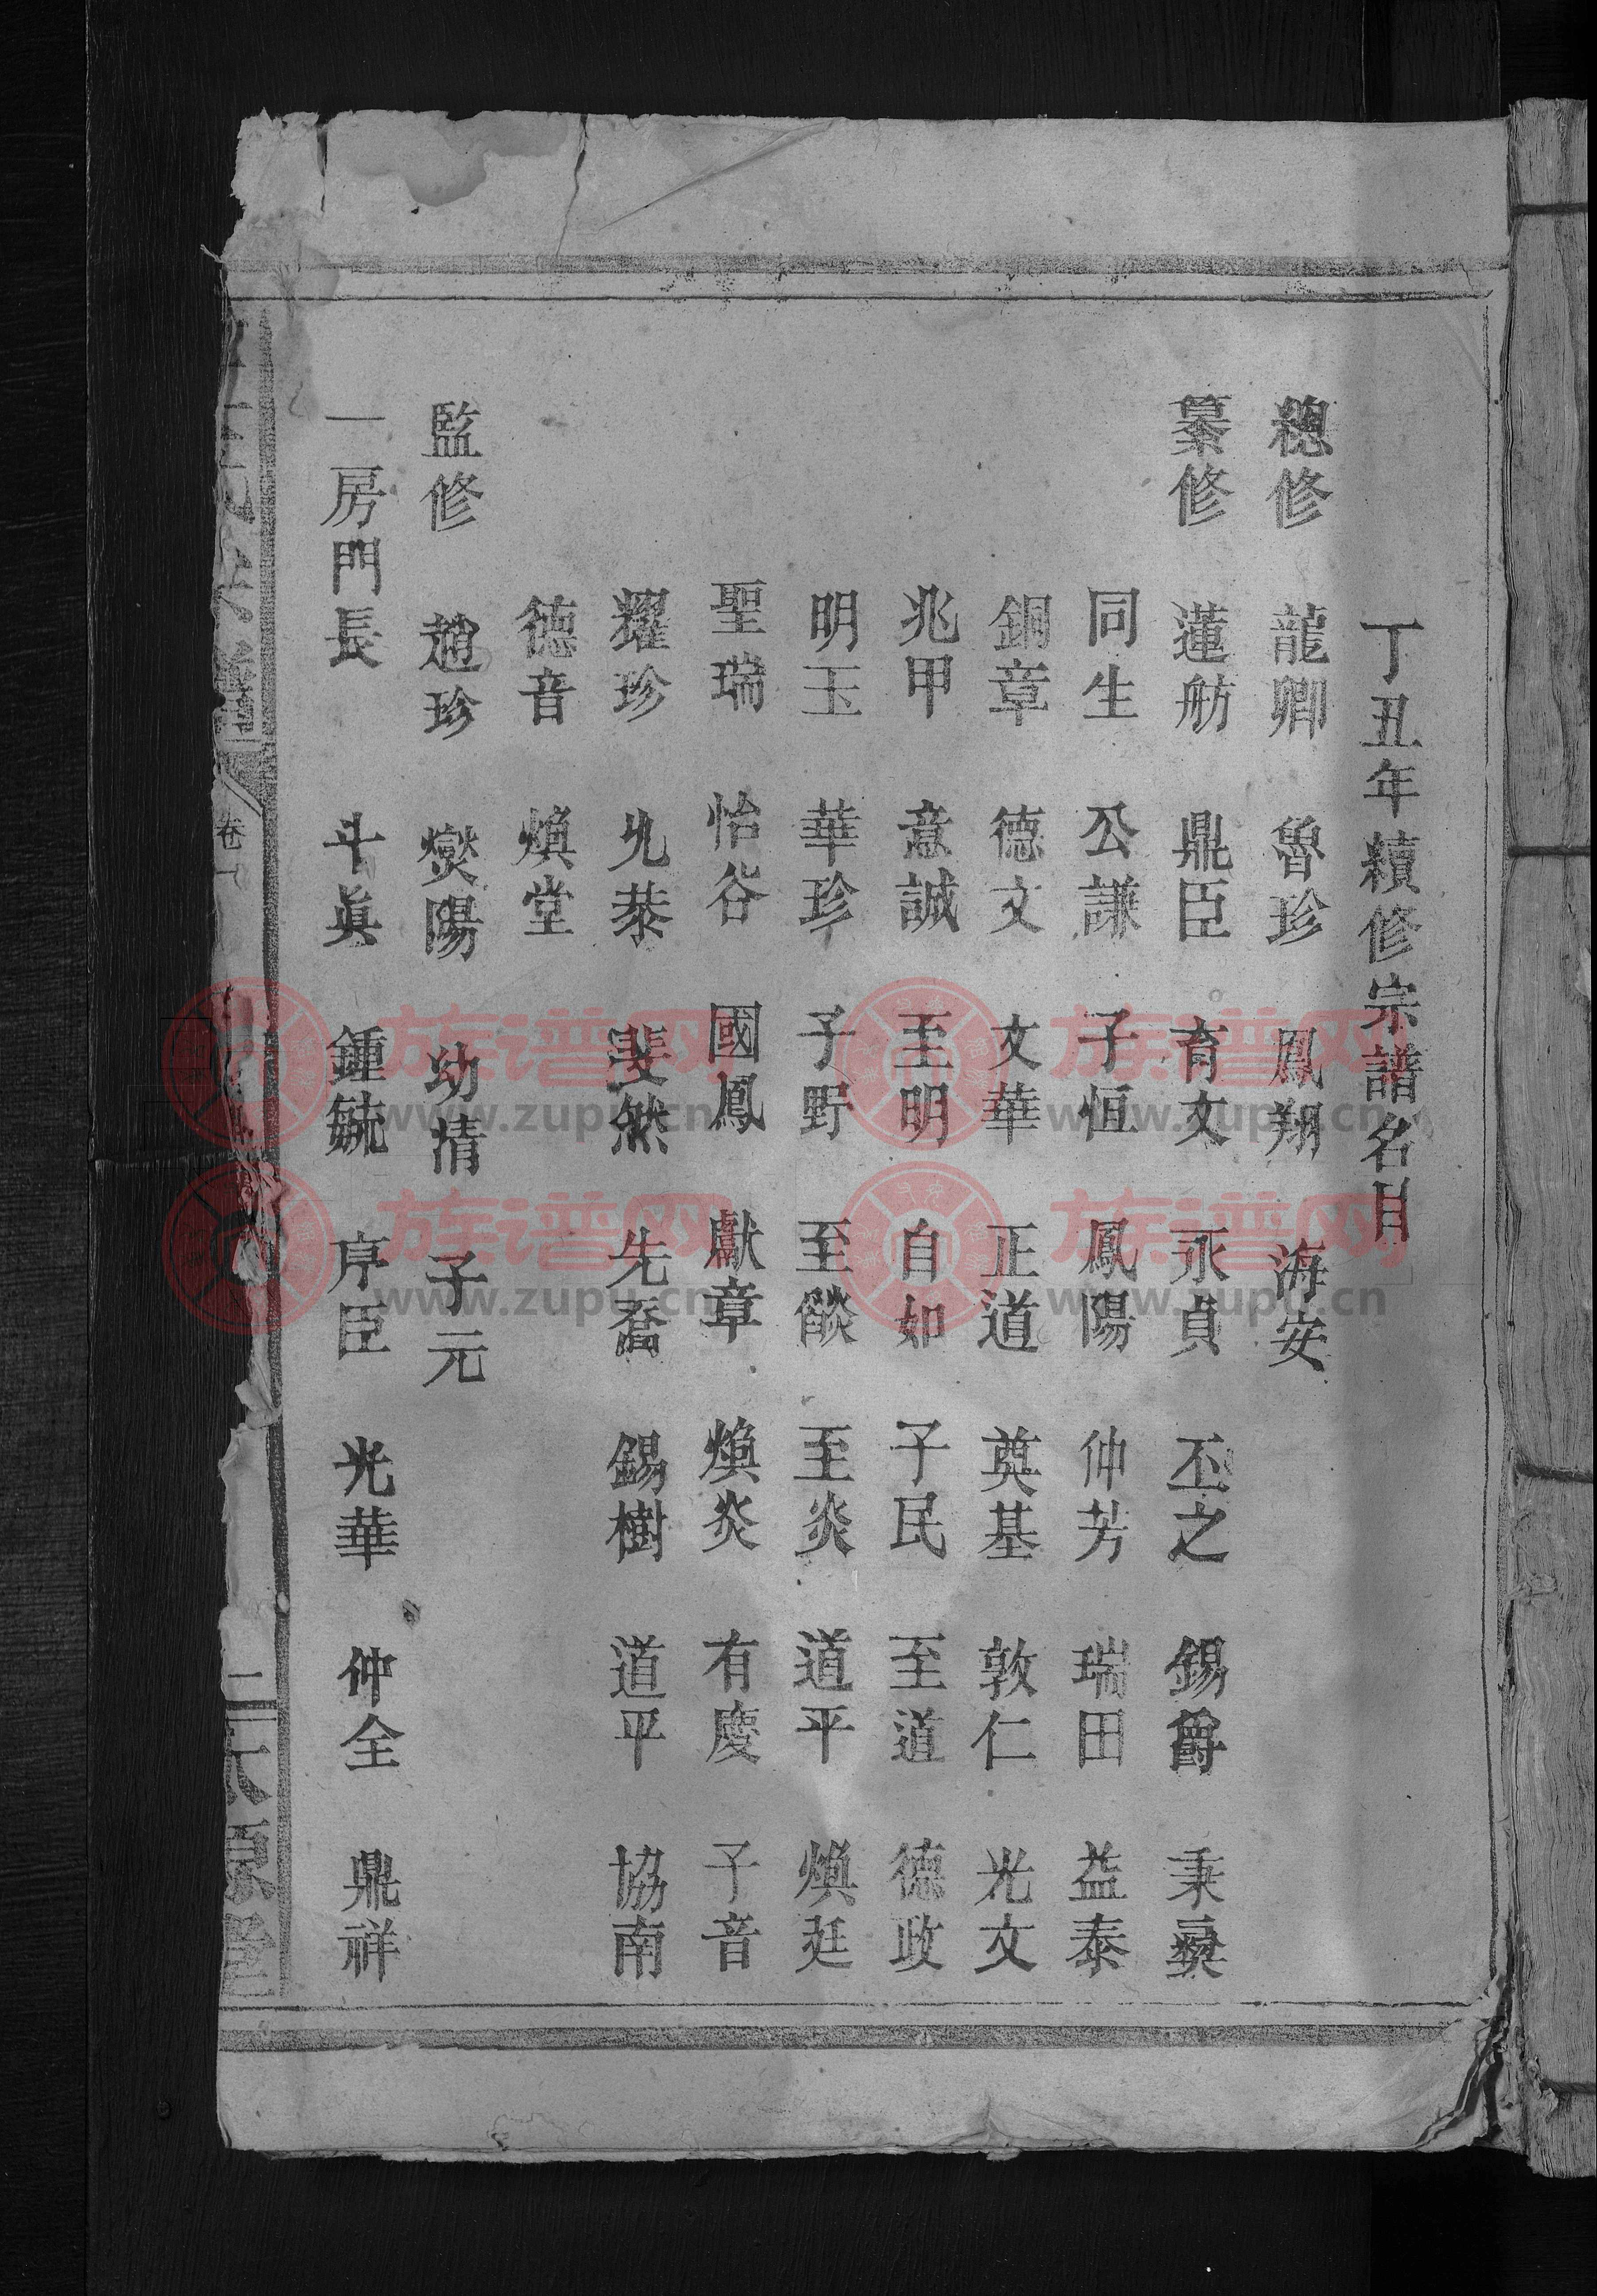 丁丑年續修宗譜名目
總修 龍卿 魯珍 鳳翔 海安
纂修 蓮舫 鼎臣 育文 永貞 丕之 錫爵 秉彝
同生 公謙 子恒 鳳陽 仲芳 瑞田 益泰
銅章 德文 文華 正道 奠基 敦仁 光文
兆甲 意誠 至明 自如 子民 至道 德政
明玉 華珍 子野 至燄 至炎 道平 煥廷
聖瑞 怡谷 國鳳 獻章 煥炎 有慶 子音
耀珍 允恭 斐然 先喬 錫樹 道平 協南
德音 煥堂
監修 趙珍 燮陽 幼清 子元
一房門長 斗眞 鍾毓 序臣 光華 仲全 鼎祥
王氏宗譜 卷一 二 太原堂
族谱网
www.zupu.cn
族谱网
www.zupu.cn
族谱网
www.zupu.cn
族谱网
www.zupu.cn